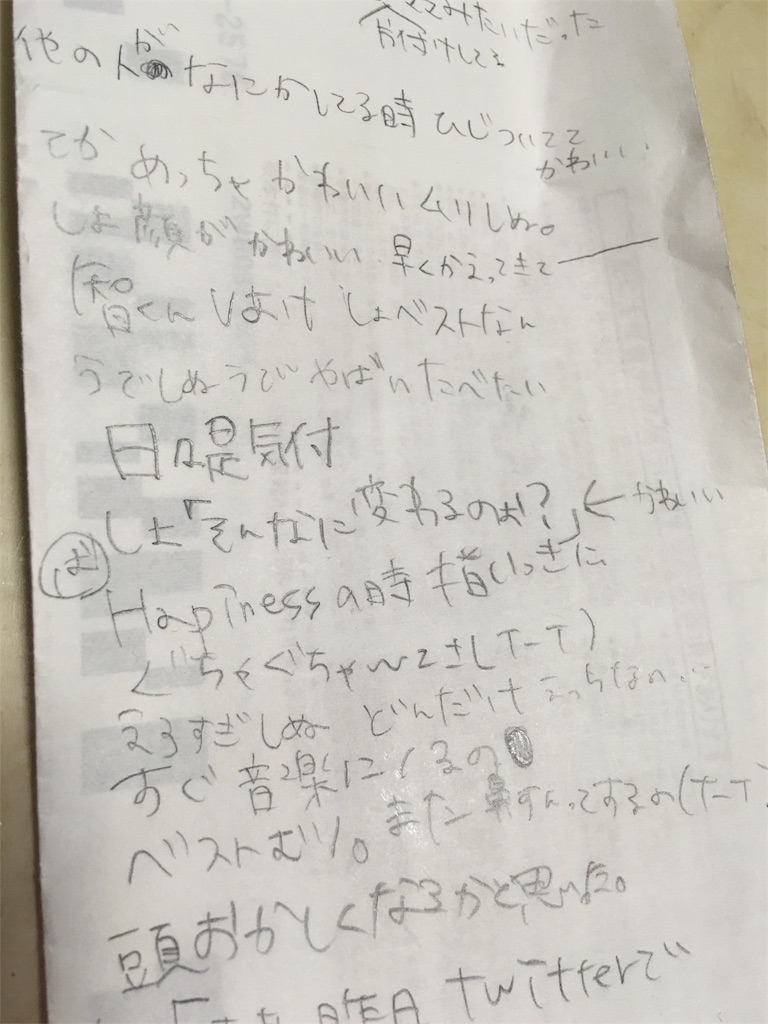 てみたいだった
お付けしてる
他の人がなにかしてる時 ひじついてて
かわいい
てか めっちゃ かわいい ムリしぬ。
しょ顔が かわいい 早くかえってきて
智くん しょベストなん
うでしぬうでやばいたべたい
日曜気付
しょ「そんなに変わるのぉ?」← かわいい
お
Happinessの時 指いっきに
ぐちゃぐちゃ (T-T)
えろすぎしぬ どんだけ えっちなの
すぐ 音楽に くるの
ベスト また すんってするの(T-T)
頭おかしくなるかと思った。
昨日 twitterで